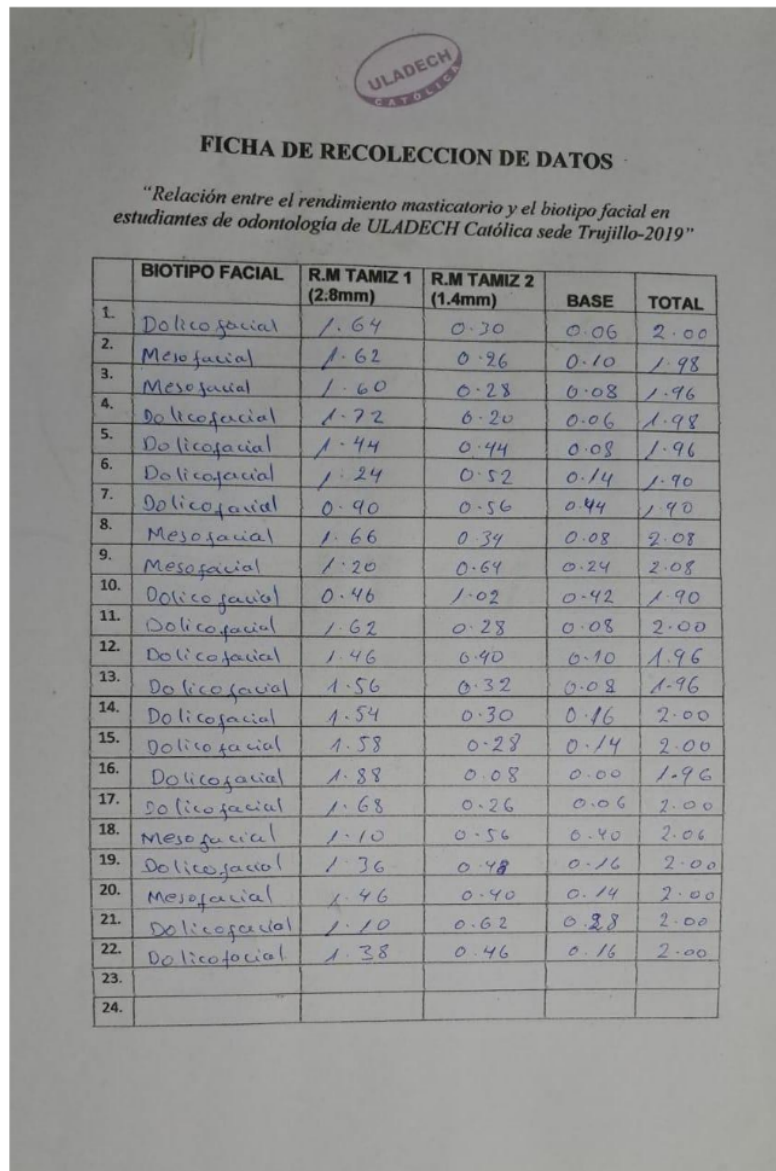 ULADECH
CATÓLICA
FICHA DE RECOLECCION DE DATOS
“Relación entre el rendimiento masticatorio y el biotipo facial en
estudiantes de odontología de ULADECH Católica sede Trujillo-2019”
BIOTIPO FACIAL R.M TAMIZ 1 (2.8mm) R.M TAMIZ 2 (1.4mm) BASE TOTAL
1. Dolicofacial 1.64 0.30 0.06 2.00
2. Mesofacial 1.62 0.26 0.10 1.98
3. Mesofacial 1.60 0.28 0.08 1.96
4. Dolicofacial 1.72 0.20 0.06 1.98
5. Dolicofacial 1.44 0.44 0.08 1.96
6. Dolicofacial 1.24 0.52 0.14 1.90
7. Dolicofacial 0.90 0.56 0.44 1.90
8. Mesofacial 1.66 0.34 0.08 2.08
9. Mesofacial 1.20 0.64 0.24 2.08
10. Dolicofacial 0.46 1.02 0.42 1.90
11. Dolicofacial 1.62 0.28 0.08 2.00
12. Dolicofacial 1.46 0.40 0.10 1.96
13. Dolicofacial 1.56 0.32 0.08 1.96
14. Dolicofacial 1.54 0.30 0.16 2.00
15. Dolicofacial 1.58 0.28 0.14 2.00
16. Dolicofacial 1.88 0.08 0.00 1.96
17. Dolicofacial 1.68 0.26 0.06 2.00
18. Mesofacial 1.10 0.56 0.40 2.06
19. Dolicofacial 1.36 0.48 0.16 2.00
20. Mesofacial 1.46 0.40 0.14 2.00
21. Dolicofacial 1.10 0.62 0.28 2.00
22. Dolicofacial 1.38 0.46 0.16 2.00
23.
24.